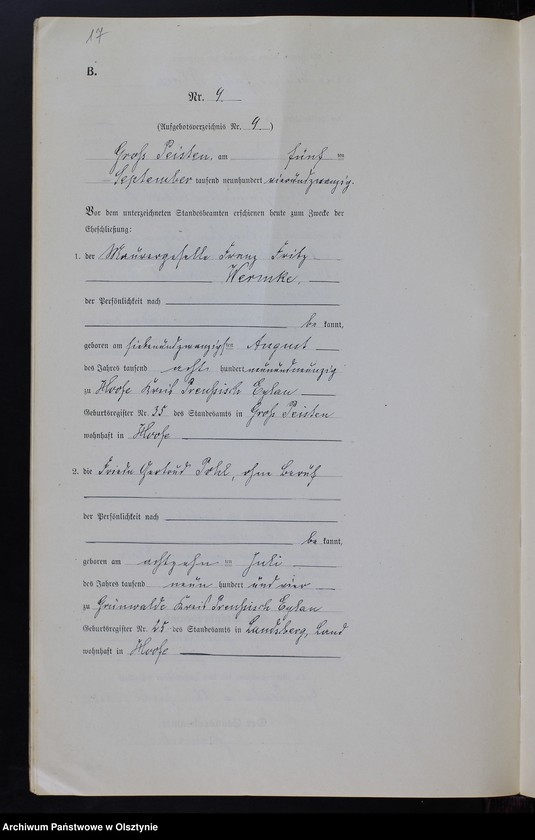 17
B.
Nr. 9
(Aufgebotsverzeichnis Nr. 9)
Groß Peisten, am fünf ten
September tausend neunhundert vierundzwanzig.
Vor dem unterzeichneten Standesbeamten erschienen heute zum Zwecke der
Eheschließung:
1. der Maurergeselle Franz Fritz
Wermke.
der Persönlichkeit nach
be kannt,
geboren am siebenundzwanzigsten August
des Jahres tausend acht hundert neunundneunzig
zu Hoofe Kreis Preußisch Eylau
Geburtsregister Nr. 35 des Standesamts in Groß Peisten
wohnhaft in Hoofe
2. die Frieda Gertrud Pohl, ohne Beruf
der Persönlichkeit nach
be kannt,
geboren am achtzehn ten Juli
des Jahres tausend neun hundert und vier
zu Grünwalde Kreis Preußisch Eylau
Geburtsregister Nr. 25 des Standesamts in Landsberg, Land
wohnhaft in Hoofe
Archiwum Państwowe w Olsztynie